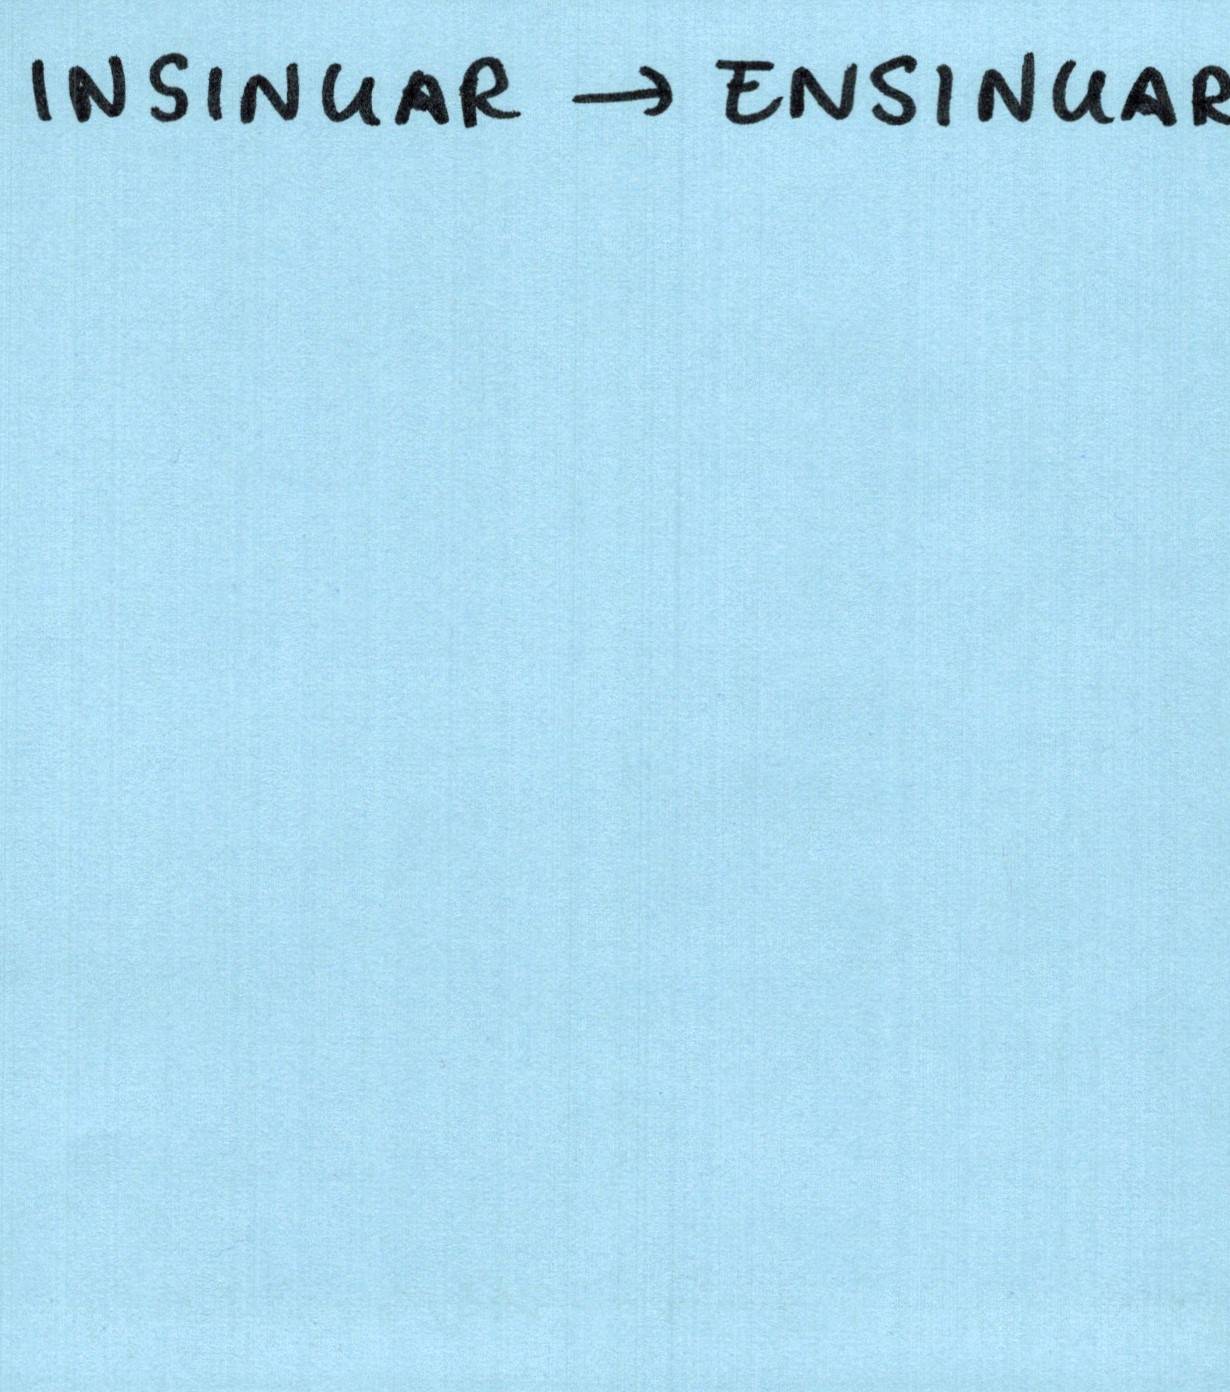 INSINUAR → ENSINUAR